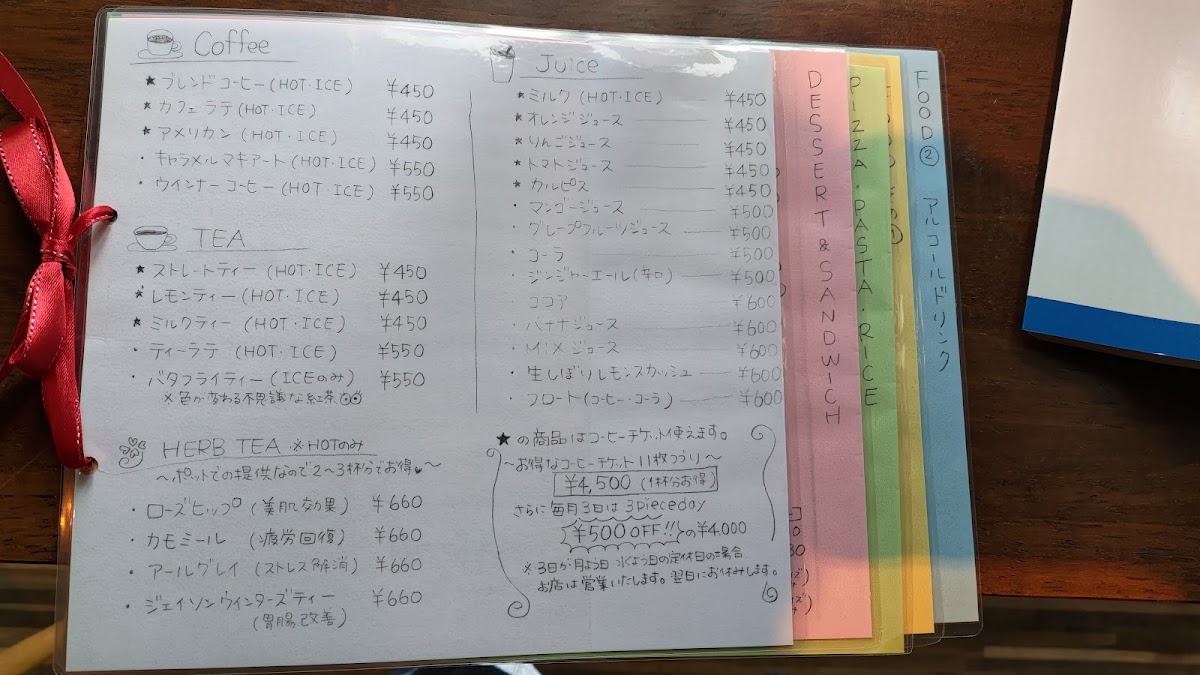 Coffee
★ ブレンドコーヒー(HOT・ICE) ¥450
★ カフェラテ (HOT・ICE) ¥450
★ アメリカン (HOT・ICE) ¥450
・キャラメルマキアート(HOT・ICE) ¥550
・ウインナーコーヒー(HOT・ICE) ¥550
TEA
★ ストレートティー (HOT・ICE) ¥450
★ レモンティー (HOT・ICE) ¥450
★ ミルクティー (HOT・ICE) ¥450
・ティーラテ (HOT・ICE) ¥550
・バタフライティー (ICEのみ) ¥550
※色が変わる不思議な紅茶
HERB TEA ※HOTのみ
〜ポットでの提供なので2〜3杯分でお得♥〜
・ローズヒップ (美肌効果) ¥660
・カモミール (疲労回復) ¥660
・アールグレイ (ストレス解消) ¥660
・ジェイソンウインターズティー ¥660
(胃腸改善)
Juice
★ ミルク (HOT・ICE) ¥450
★ オレンジジュース ¥450
★ りんごジュース ¥450
★ トマトジュース ¥450
★ カルピス ¥450
・マンゴージュース ¥500
・グレープフルーツジュース ¥500
・コーラ ¥500
・ジンジャーエール(辛口) ¥500
ココア ¥600
・バナナジュース ¥600
・MIXジュース ¥600
・生しぼりレモンスカッシュ ¥600
・フロート(コーヒー・コーラ) ¥600
★の商品はコーヒーチケット使えます。
〜お得なコーヒーチケット11枚つづり〜
¥4,500 (1杯分お得)
さらに毎月3日は3pieceday
¥500 OFF!!の¥4,000
※3日が月よう日・火よう日の定休日の場合
お店は営業いたします。翌日にお休みします。
DESSERT & SANDWICH
PIZZA・PASTA・RICE
FOOD② アルコールドリンク